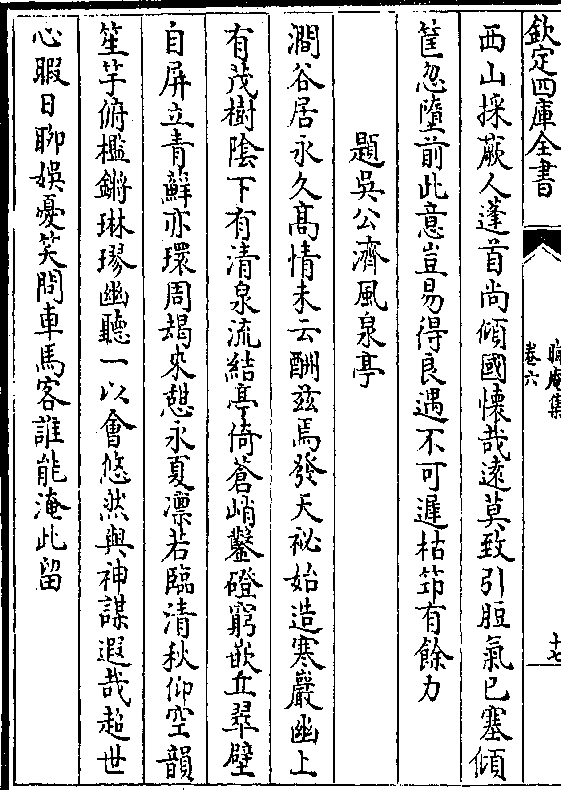 欽定四庫全書
晦庵集
卷六
十七
西山採蕨人蓬首尚傾國懷哉遠莫致引脰氣已塞傾
筐忽墮前此意豈易得良遇不可遲枯笻有餘力
題吳公濟風泉亭
澗谷居永久高情未云酬兹焉發天祕始造寒巖幽上
有茂樹陰下有清泉流結亭倚蒼峭鑿磴窮嵌丘翠壁
自屏立青蘚亦環周朅來憇永夏凛若臨清秋仰空韻
笙竽俯檻鏘琳璆幽聽一以會悠然與神謀遐哉超世
心暇日聊娛憂笑問車馬客誰能淹此留